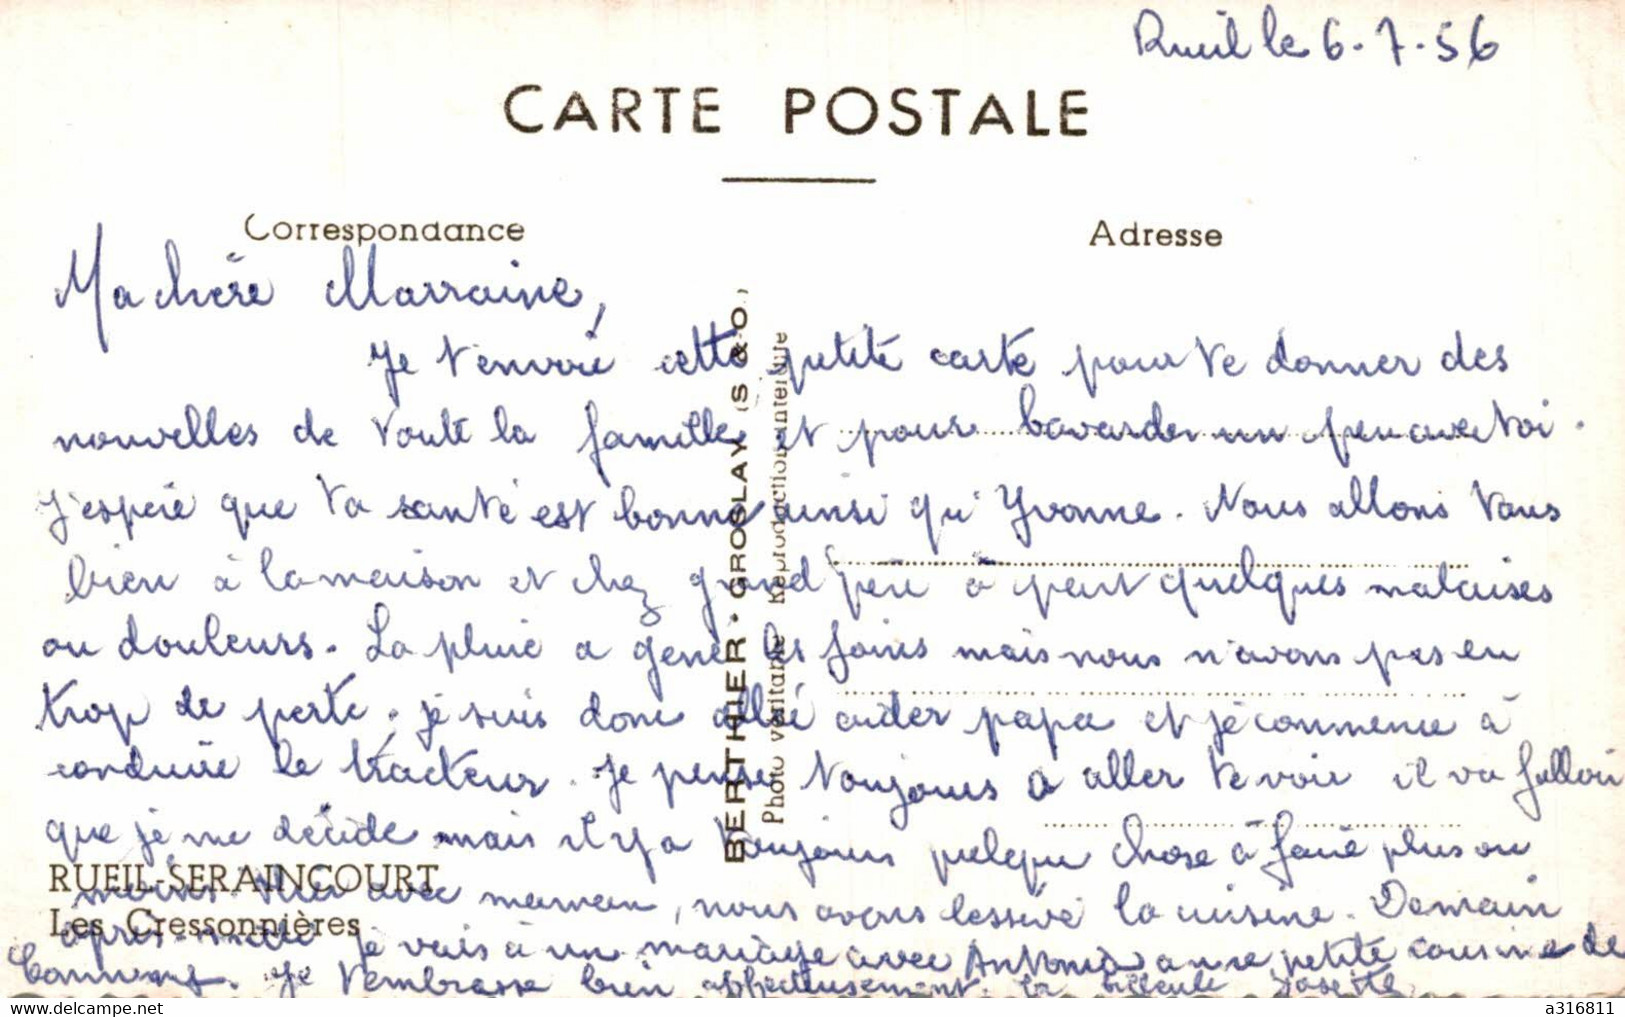 Rueil le 6.7.56
CARTE POSTALE
Correspondance
Adresse
Ma chère Marraine,
Je t'envoie cette petite carte pour te donner des
nouvelles de toute la famille et pour bavarder un peu avec toi.
J'espère que ta santé est bonne ainsi qu' Yvonne. Nous allons tous
bien à la maison et chez grand père à part quelques malaises
ou douleurs. La pluie a gené les foins mais nous n'avons pas eu
trop de perte. je suis donc allée aider papa et je commence à
conduire le tracteur. Je pense toujours à aller te voir il va falloir
que je me décide mais il y a toujours quelque chose à faire plus ou
moins. Hier avec maman, nous avons lessivé la cuisine. Demain
après-midi je vais à un mariage avec Antonia à une petite cousine de
Je t'embrasse bien affectueusement. ta filleule Josette
BERTHIER • GROSLAY (S & O.)
Photo véritable Reproduction interdite
RUEIL-SERAINCOURT
Les Cressonnières
delcampe.net
a316811